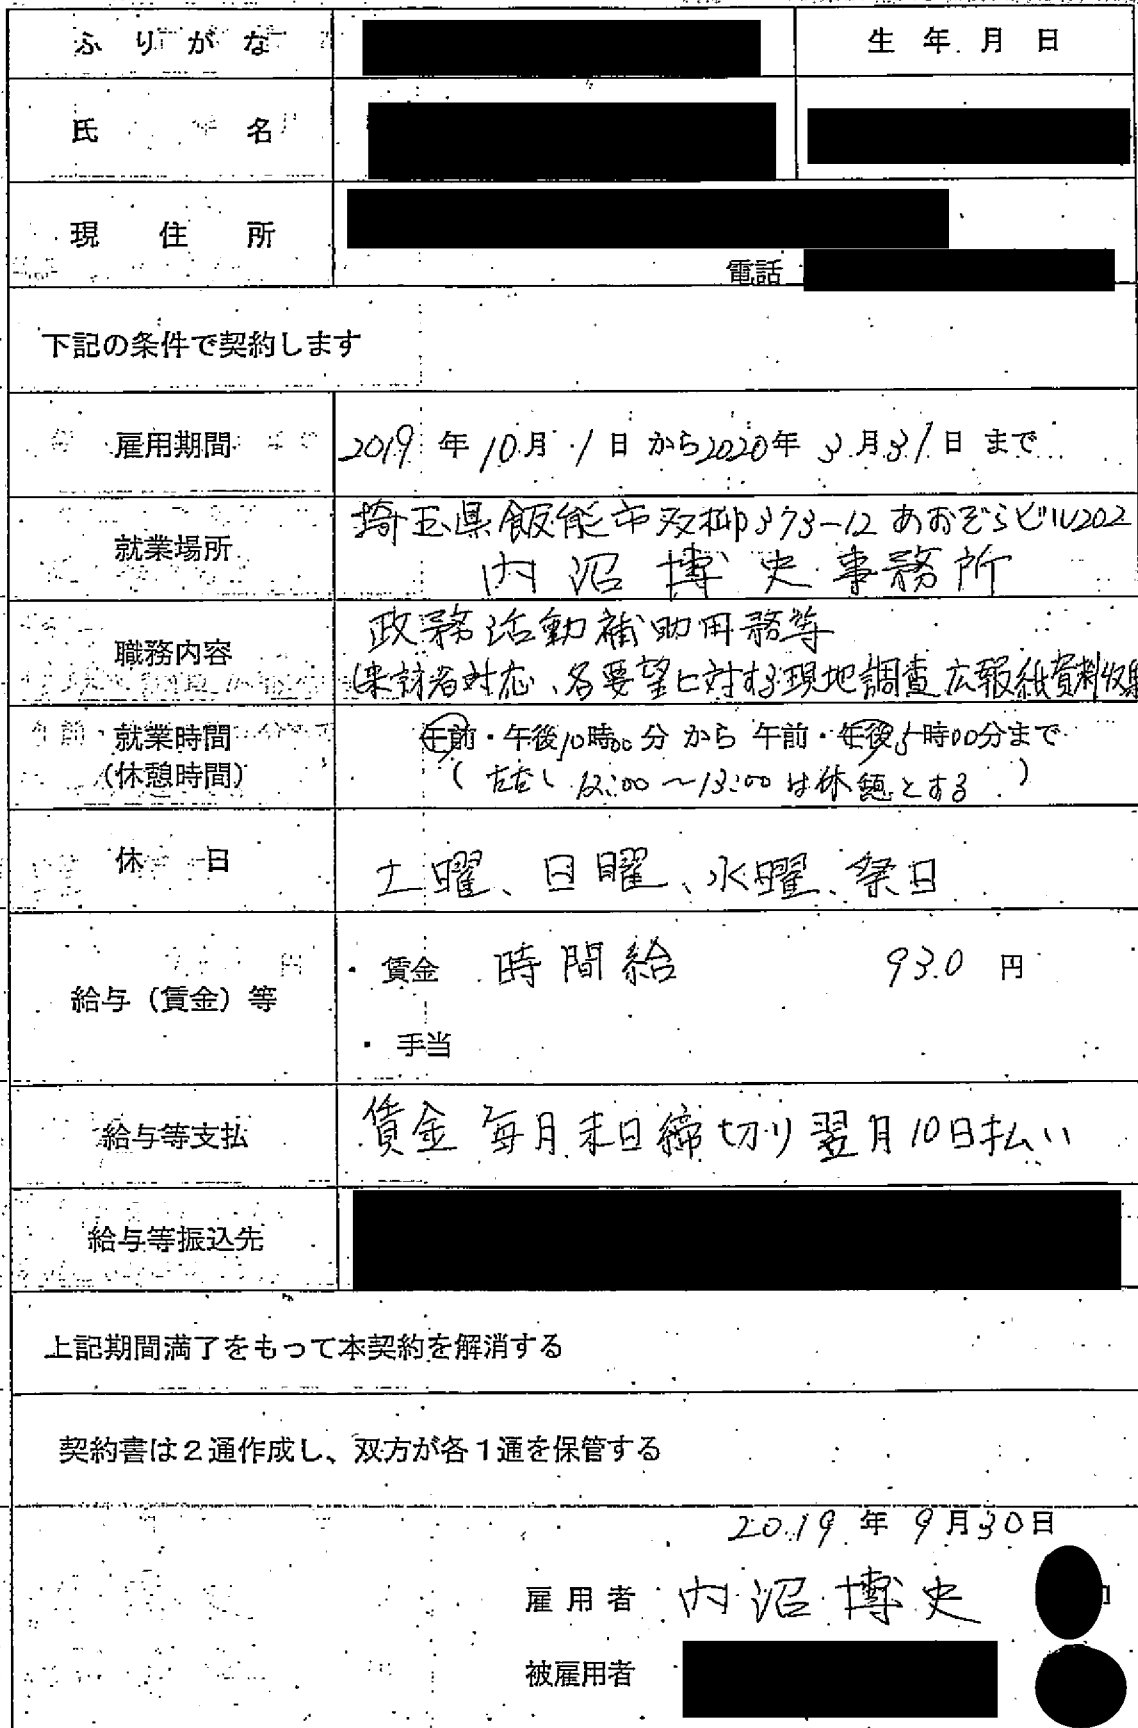 ふりがな
生年月日
氏名
現住所
電話
下記の条件で契約します
雇用期間 2019年10月1日から2020年3月31日まで
就業場所 埼玉県飯能市双柳373-12 あおぞらビル202
内沼博史事務所
職務内容 政務活動補助用務等
(来訪者対応、各要望に対する現地調査 広報紙資料収集
就業時間 午前・午後10時00分から午前・午後5時00分まで
(休憩時間) (ただし 12:00～13:00は休憩とする)
休日 土曜、日曜、水曜、祭日
給与(賃金)等 ・賃金 時間給 930円
・手当
給与等支払 賃金 毎月末日締切り翌月10日払い
給与等振込先
上記期間満了をもって本契約を解消する
契約書は2通作成し、双方が各1通を保管する
2019年9月30日
雇用者 内沼博史
被雇用者